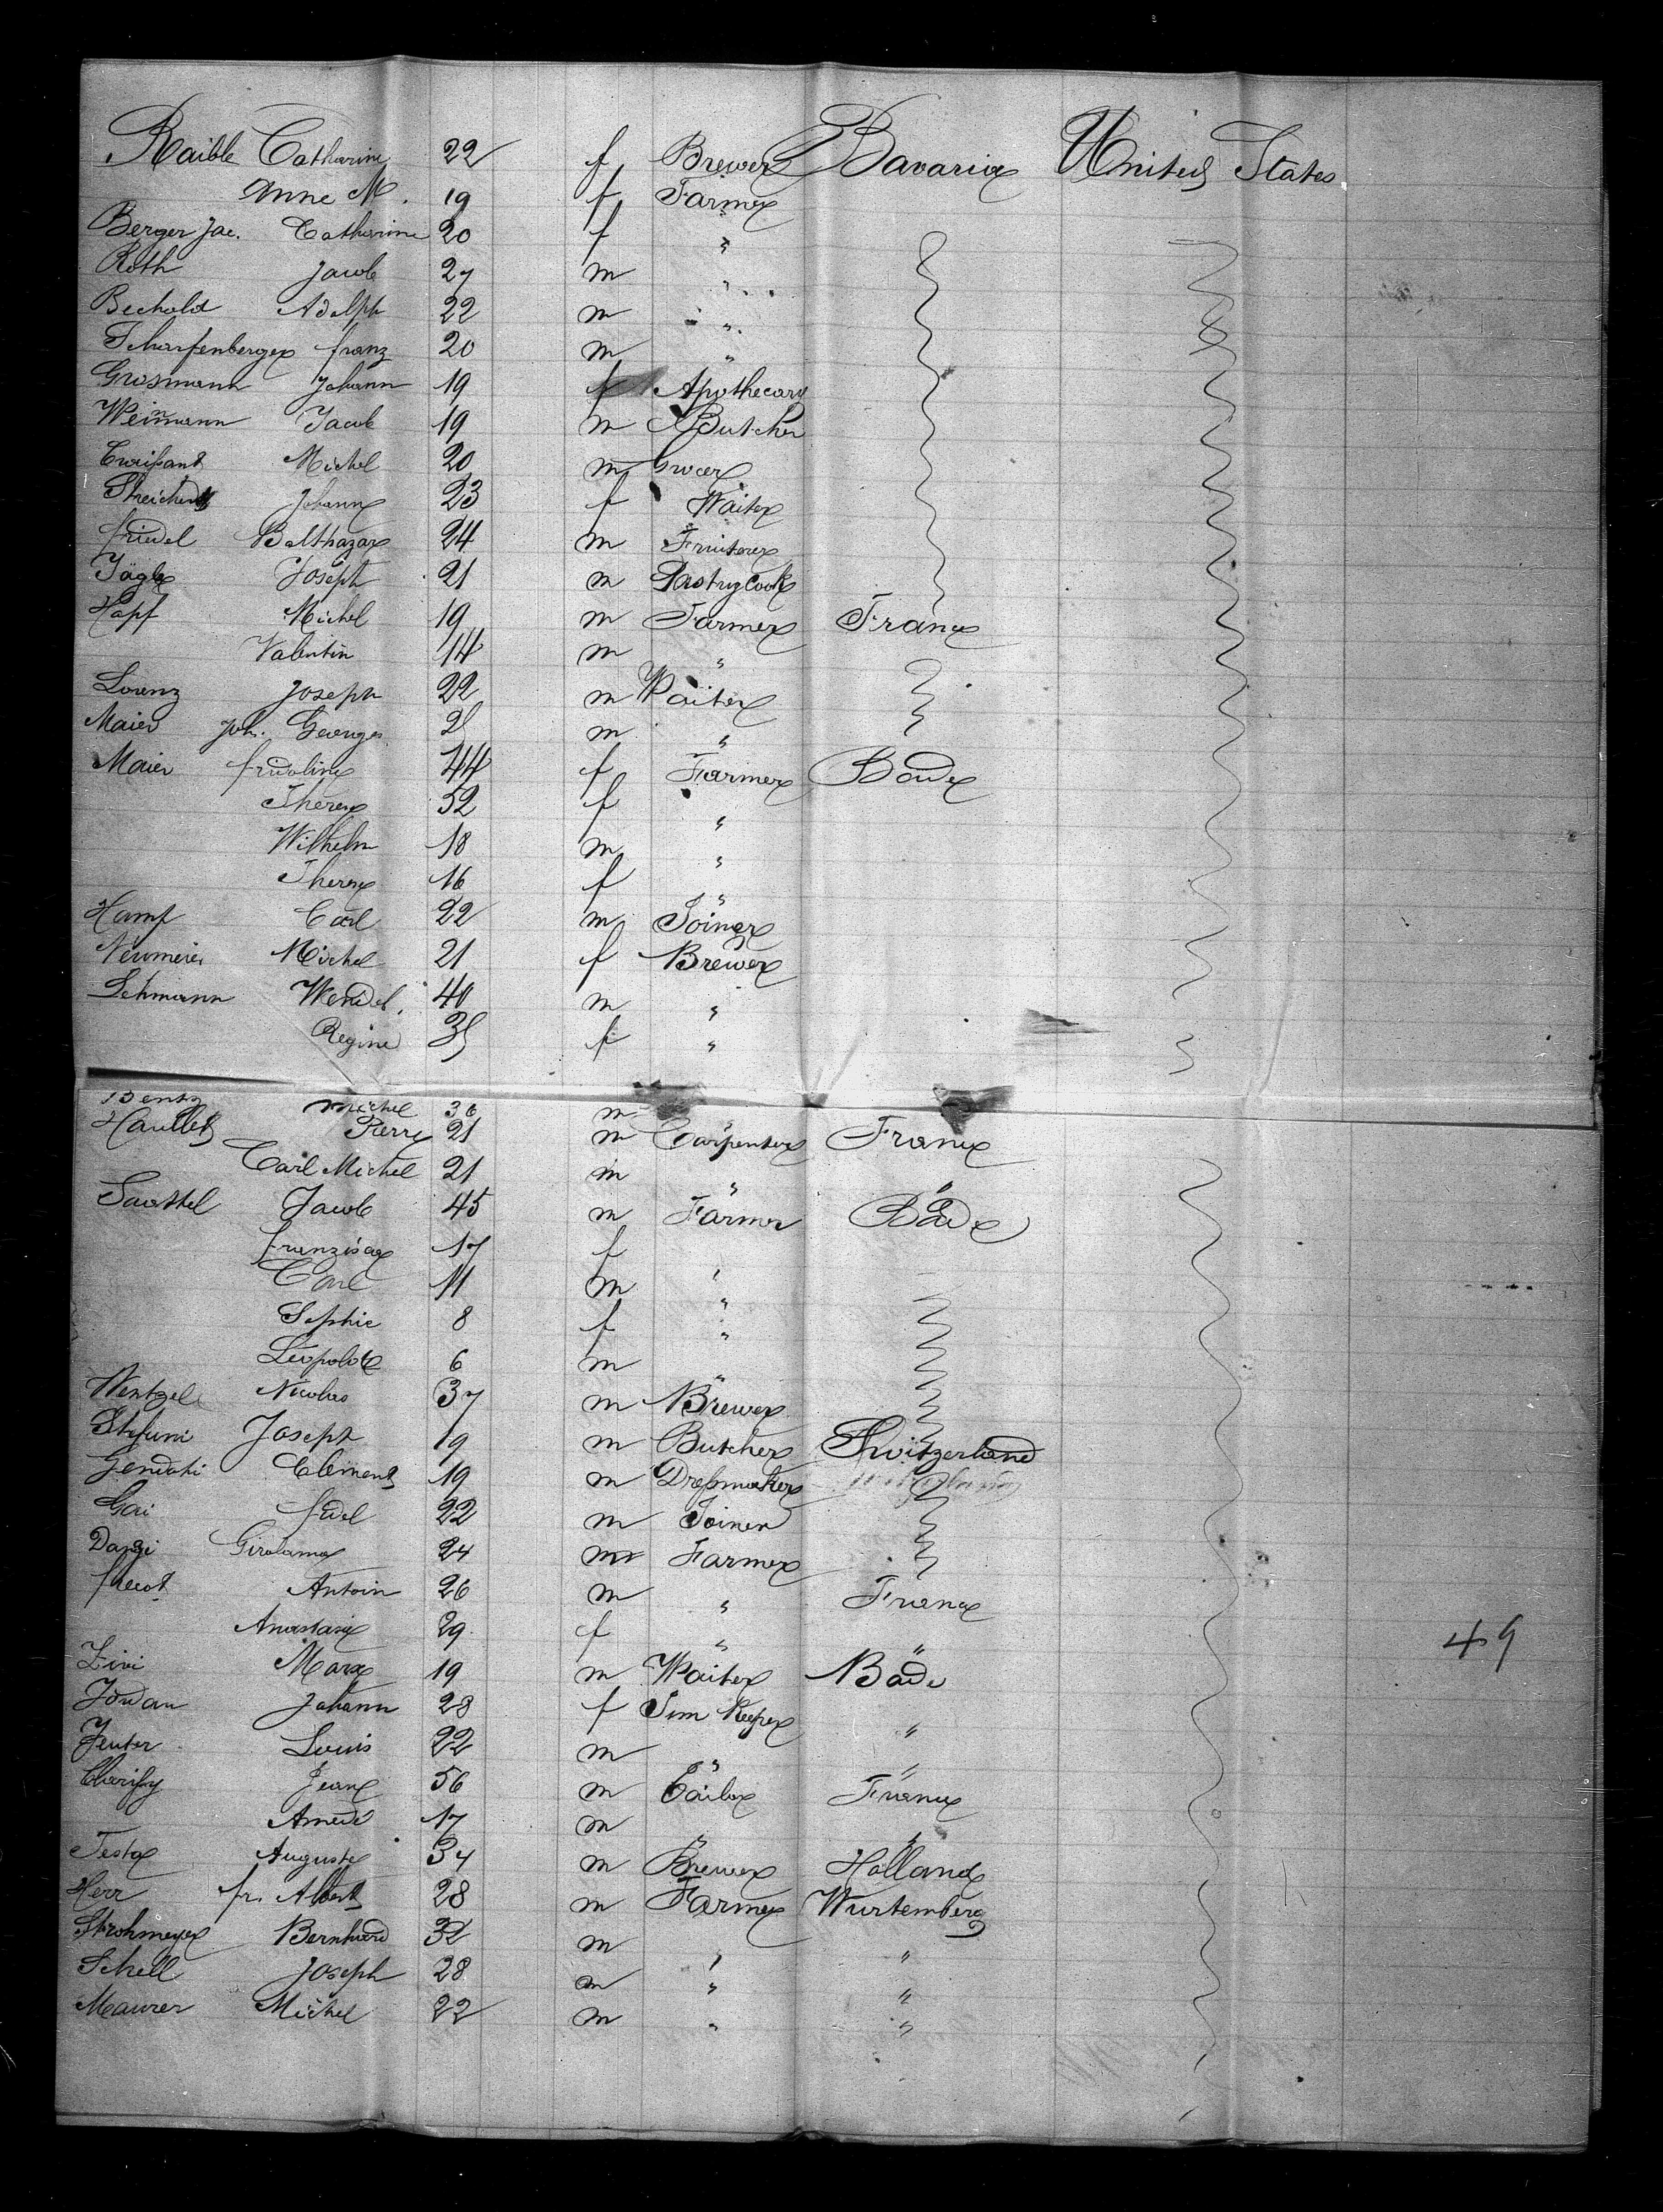 Raible Catharine 22 f Brewer Bavaria United States
Anne M. 19 f Farmer
Berger Jac. Catharine 20 f "
Roth Jacob 27 m "
Bechold Adolph 22 m "
Scharfenberger franz 20 m "
Grosmann Johann 19 f Apothecary
Weinmann Jacob 19 m Butcher
Michel 20 m Grocer
Johann 23 f Waiter
friedel Balthazar 24 m Fruiterer
Jägle Joseph 21 m Pastrycook
Hapf Michel 19 m Farmer France
Valentin 14 m "
Lorenz Joseph 22 m Waiter
Maier Joh. Georges m "
Maier fridoline 44 f Farmer Bade
Therese 52 f "
Wilhelm 18 m "
Therese 16 f "
Hamp Carl 22 m Joiner
Neumeier Michel 21 f Brewer
Lehmann Wendel. 40 m "
Regine f "
Bentz Michel 36 m
Haullet Pierre 21 m Carpenter France
Carl Michel 21 m " "
Jacob 45 m Farmer Bade
franzisca 17 f
Carl 11 m "
Sophie 8 f "
Leopold 6 m "
Wentzel Nicolas 37 m Brewer
Stefani Joseph 19 m Butcher Switzerland
Clement 19 m Dressmaker
fidel 22 m Joiner
Girolamo 24 m Farmer
Antoin 26 m " France
Anastasie 29 f " "
Livi Marx 19 m Waiter Bade
Jordan Johann 28 f Keeper "
Louis 22 m " "
Jean 56 m France
Amedé 17 m " "
Testa Auguste 34 m Brewer Holland
Herr fr. Albert 28 m Farmer Wurtemberg
Strohmeyer Bernhard 32 m " "
Schell Joseph 28 m " "
Maurer Michel 22 m " "
49